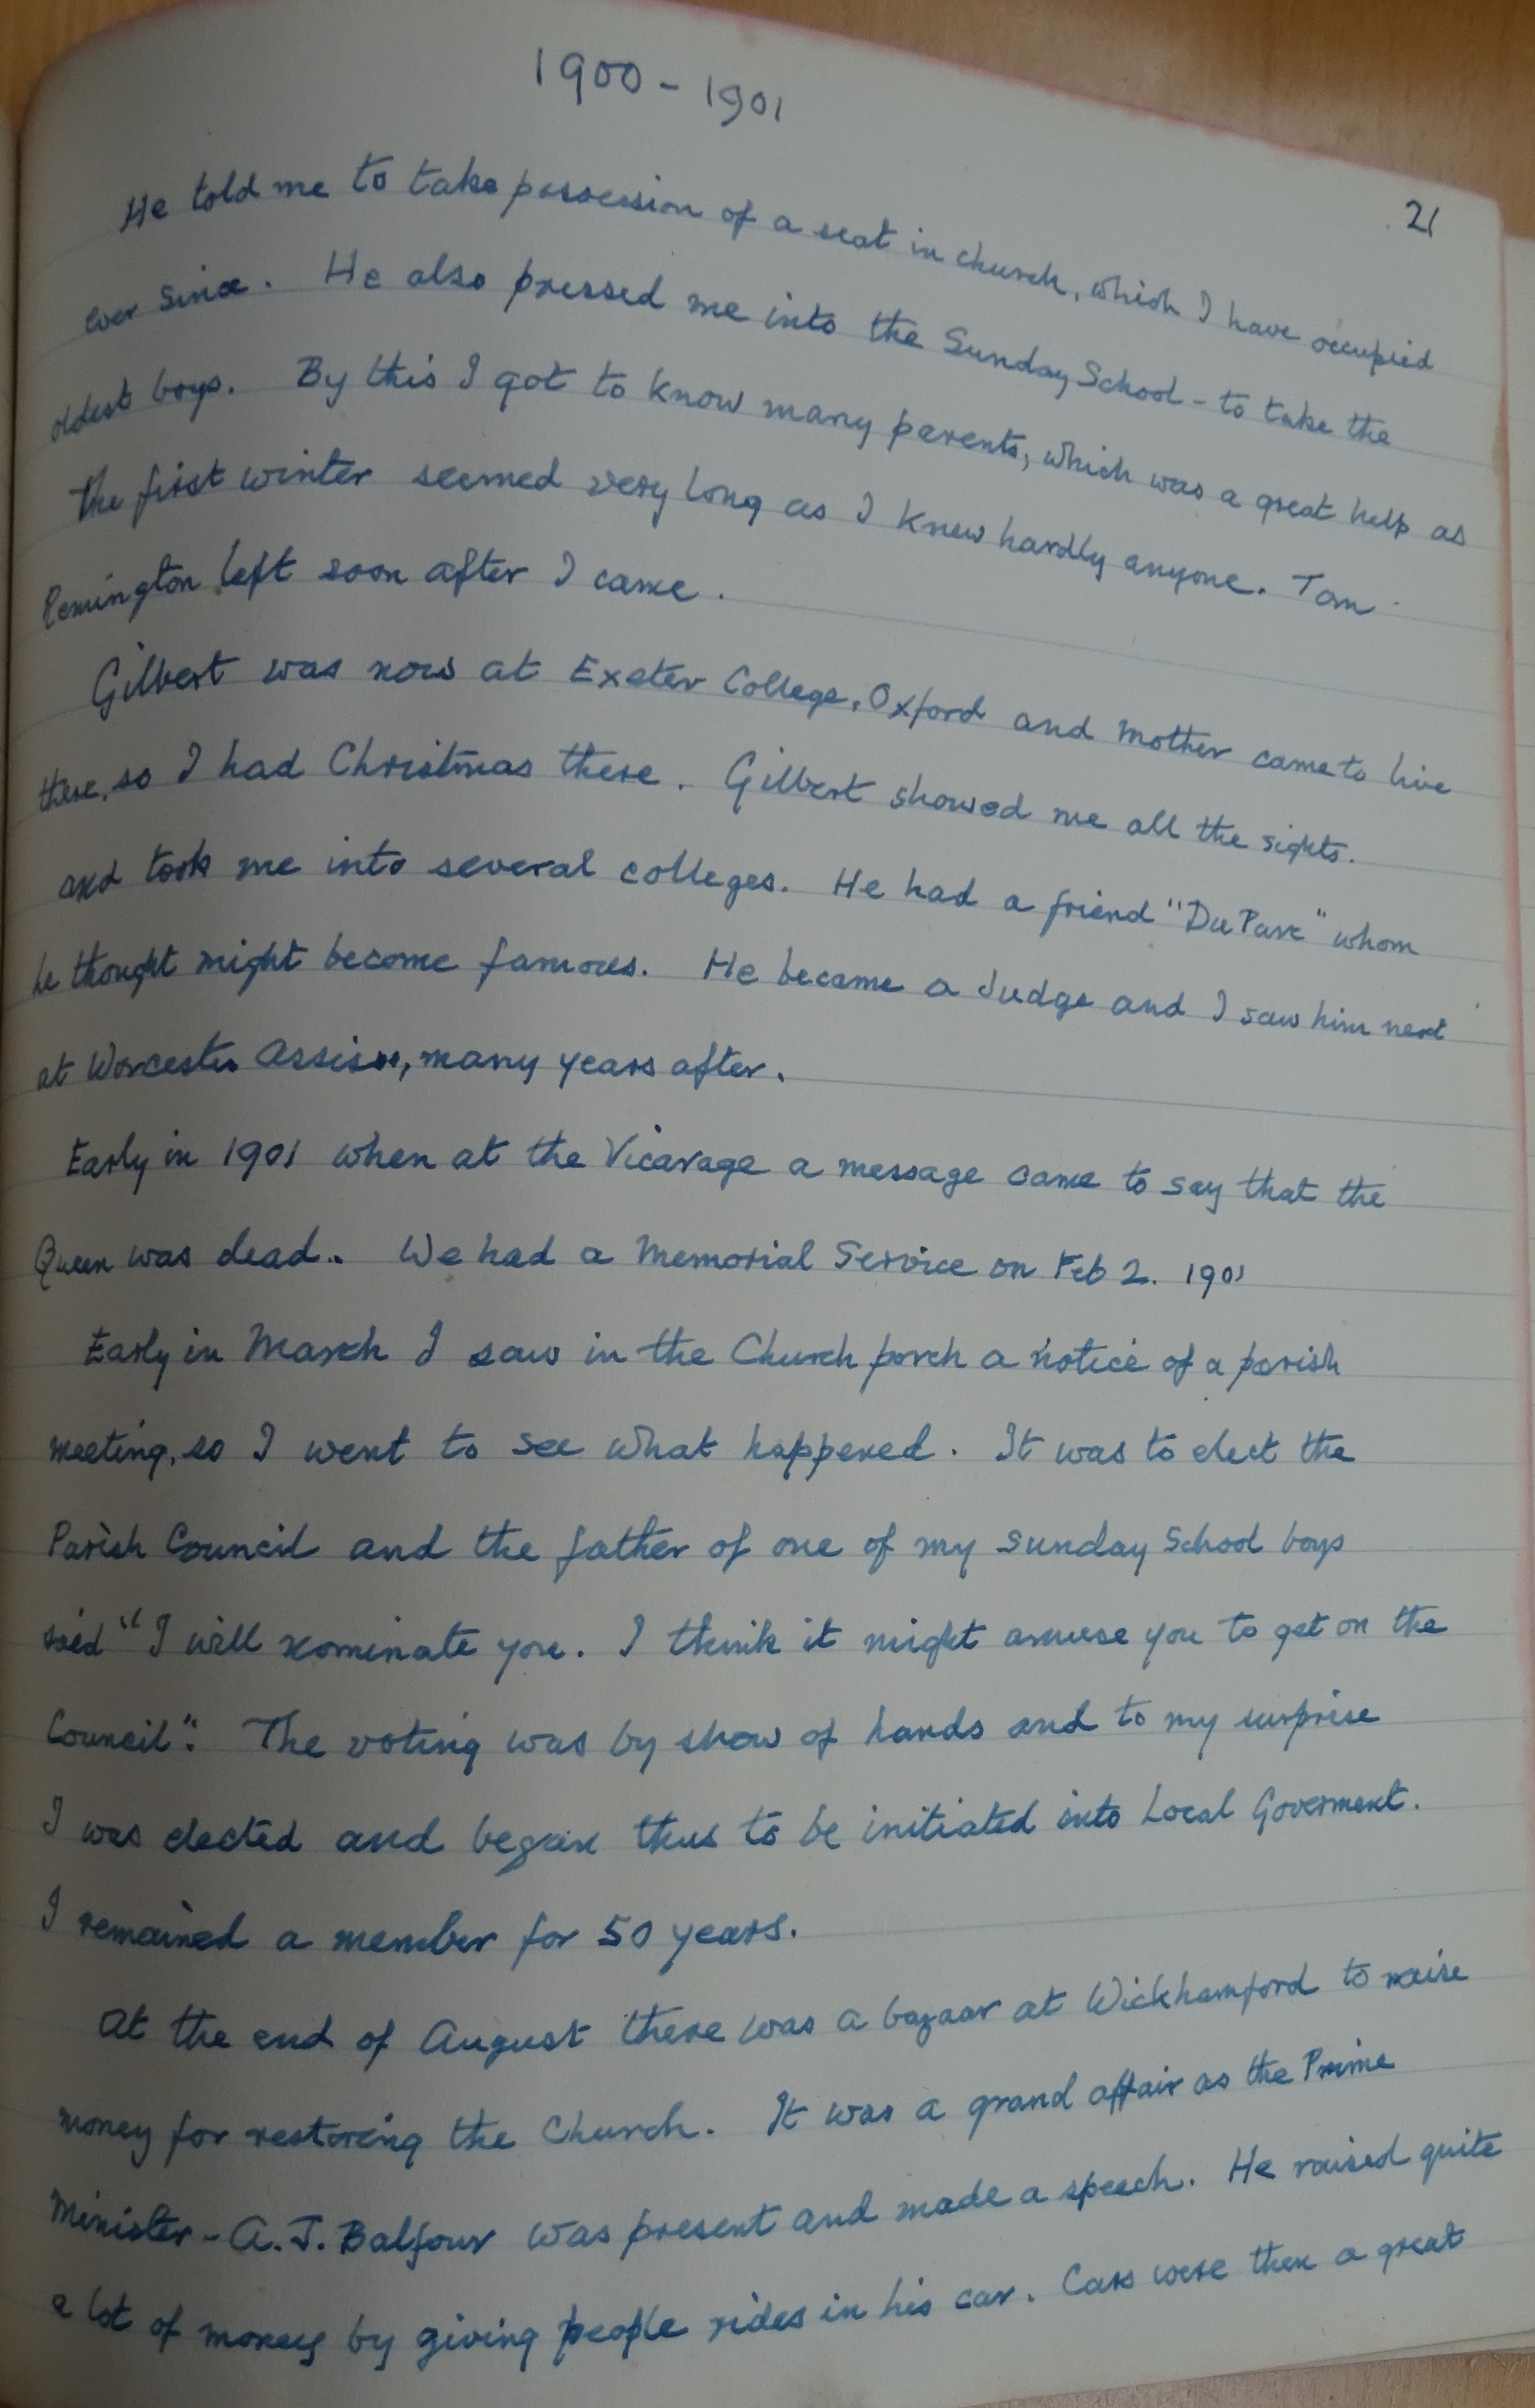 1900 - 1901
21
He told me to take possession of a seat in church, which I have occupied
ever since. He also pressed me into the Sunday School - to take the
oldest boys. By this I got to know many parents, which was a great help as
the first winter seemed very long as I knew hardly anyone. Tom
Remington left soon after I came.
Gilbert was now at Exeter College, Oxford and Mother came to live
there, so I had Christmas there. Gilbert showed me all the sights.
and took me into several colleges. He had a friend "Du Parc" whom
he thought might become famous. He became a Judge and I saw him next
at Worcester Assises, many years after.
Early in 1901 when at the Vicarage a message came to say that the
Queen was dead.. We had a Memorial Service on Feb 2. 1901
Early in March I saw in the Church porch a notice of a parish
meeting, so I went to see what happened. It was to elect the
Parish Council and the father of one of my Sunday School boys
said "I will nominate you. I think it might amuse you to get on the
Council". The voting was by show of hands and to my surprise
I was elected and began thus to be initiated into Local Goverment.
I remained a member for 50 years.
At the end of August there was a bazaar at Wickhamford to raise
money for restoring the Church. It was a grand affair as the Prime
Minister - A. J. Balfour was present and made a speech. He raised quite
a lot of money by giving people rides in his car. Cars were then a great